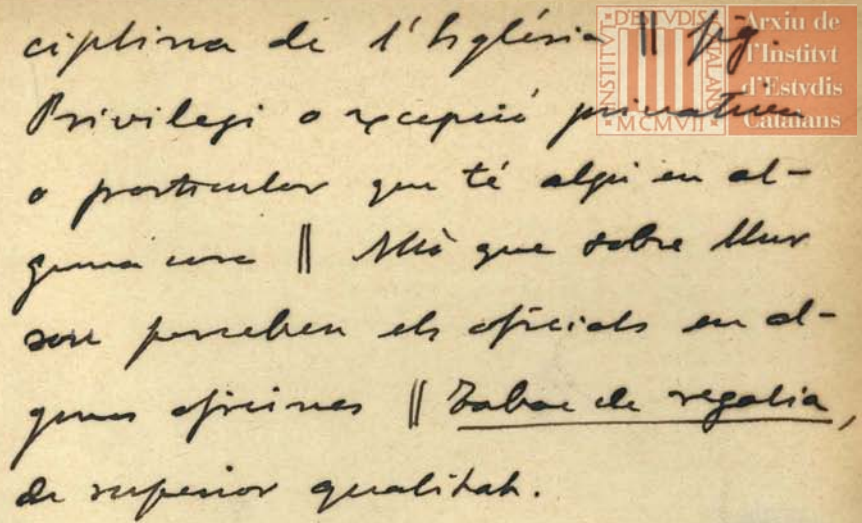 ciplina de l'Església || fig.
Privilegi o excepció privativa
o particular que té algú en al-
guna cosa || Allò que sobre llur
sou perceben els oficials en al-
gunes oficines || Tabac de regalia,
de superior qualitat.
INSTITVT D'ESTVDIS CATALANS
MCMVII
Arxiu de
l'Institvt
d'Estvdis
Catalans